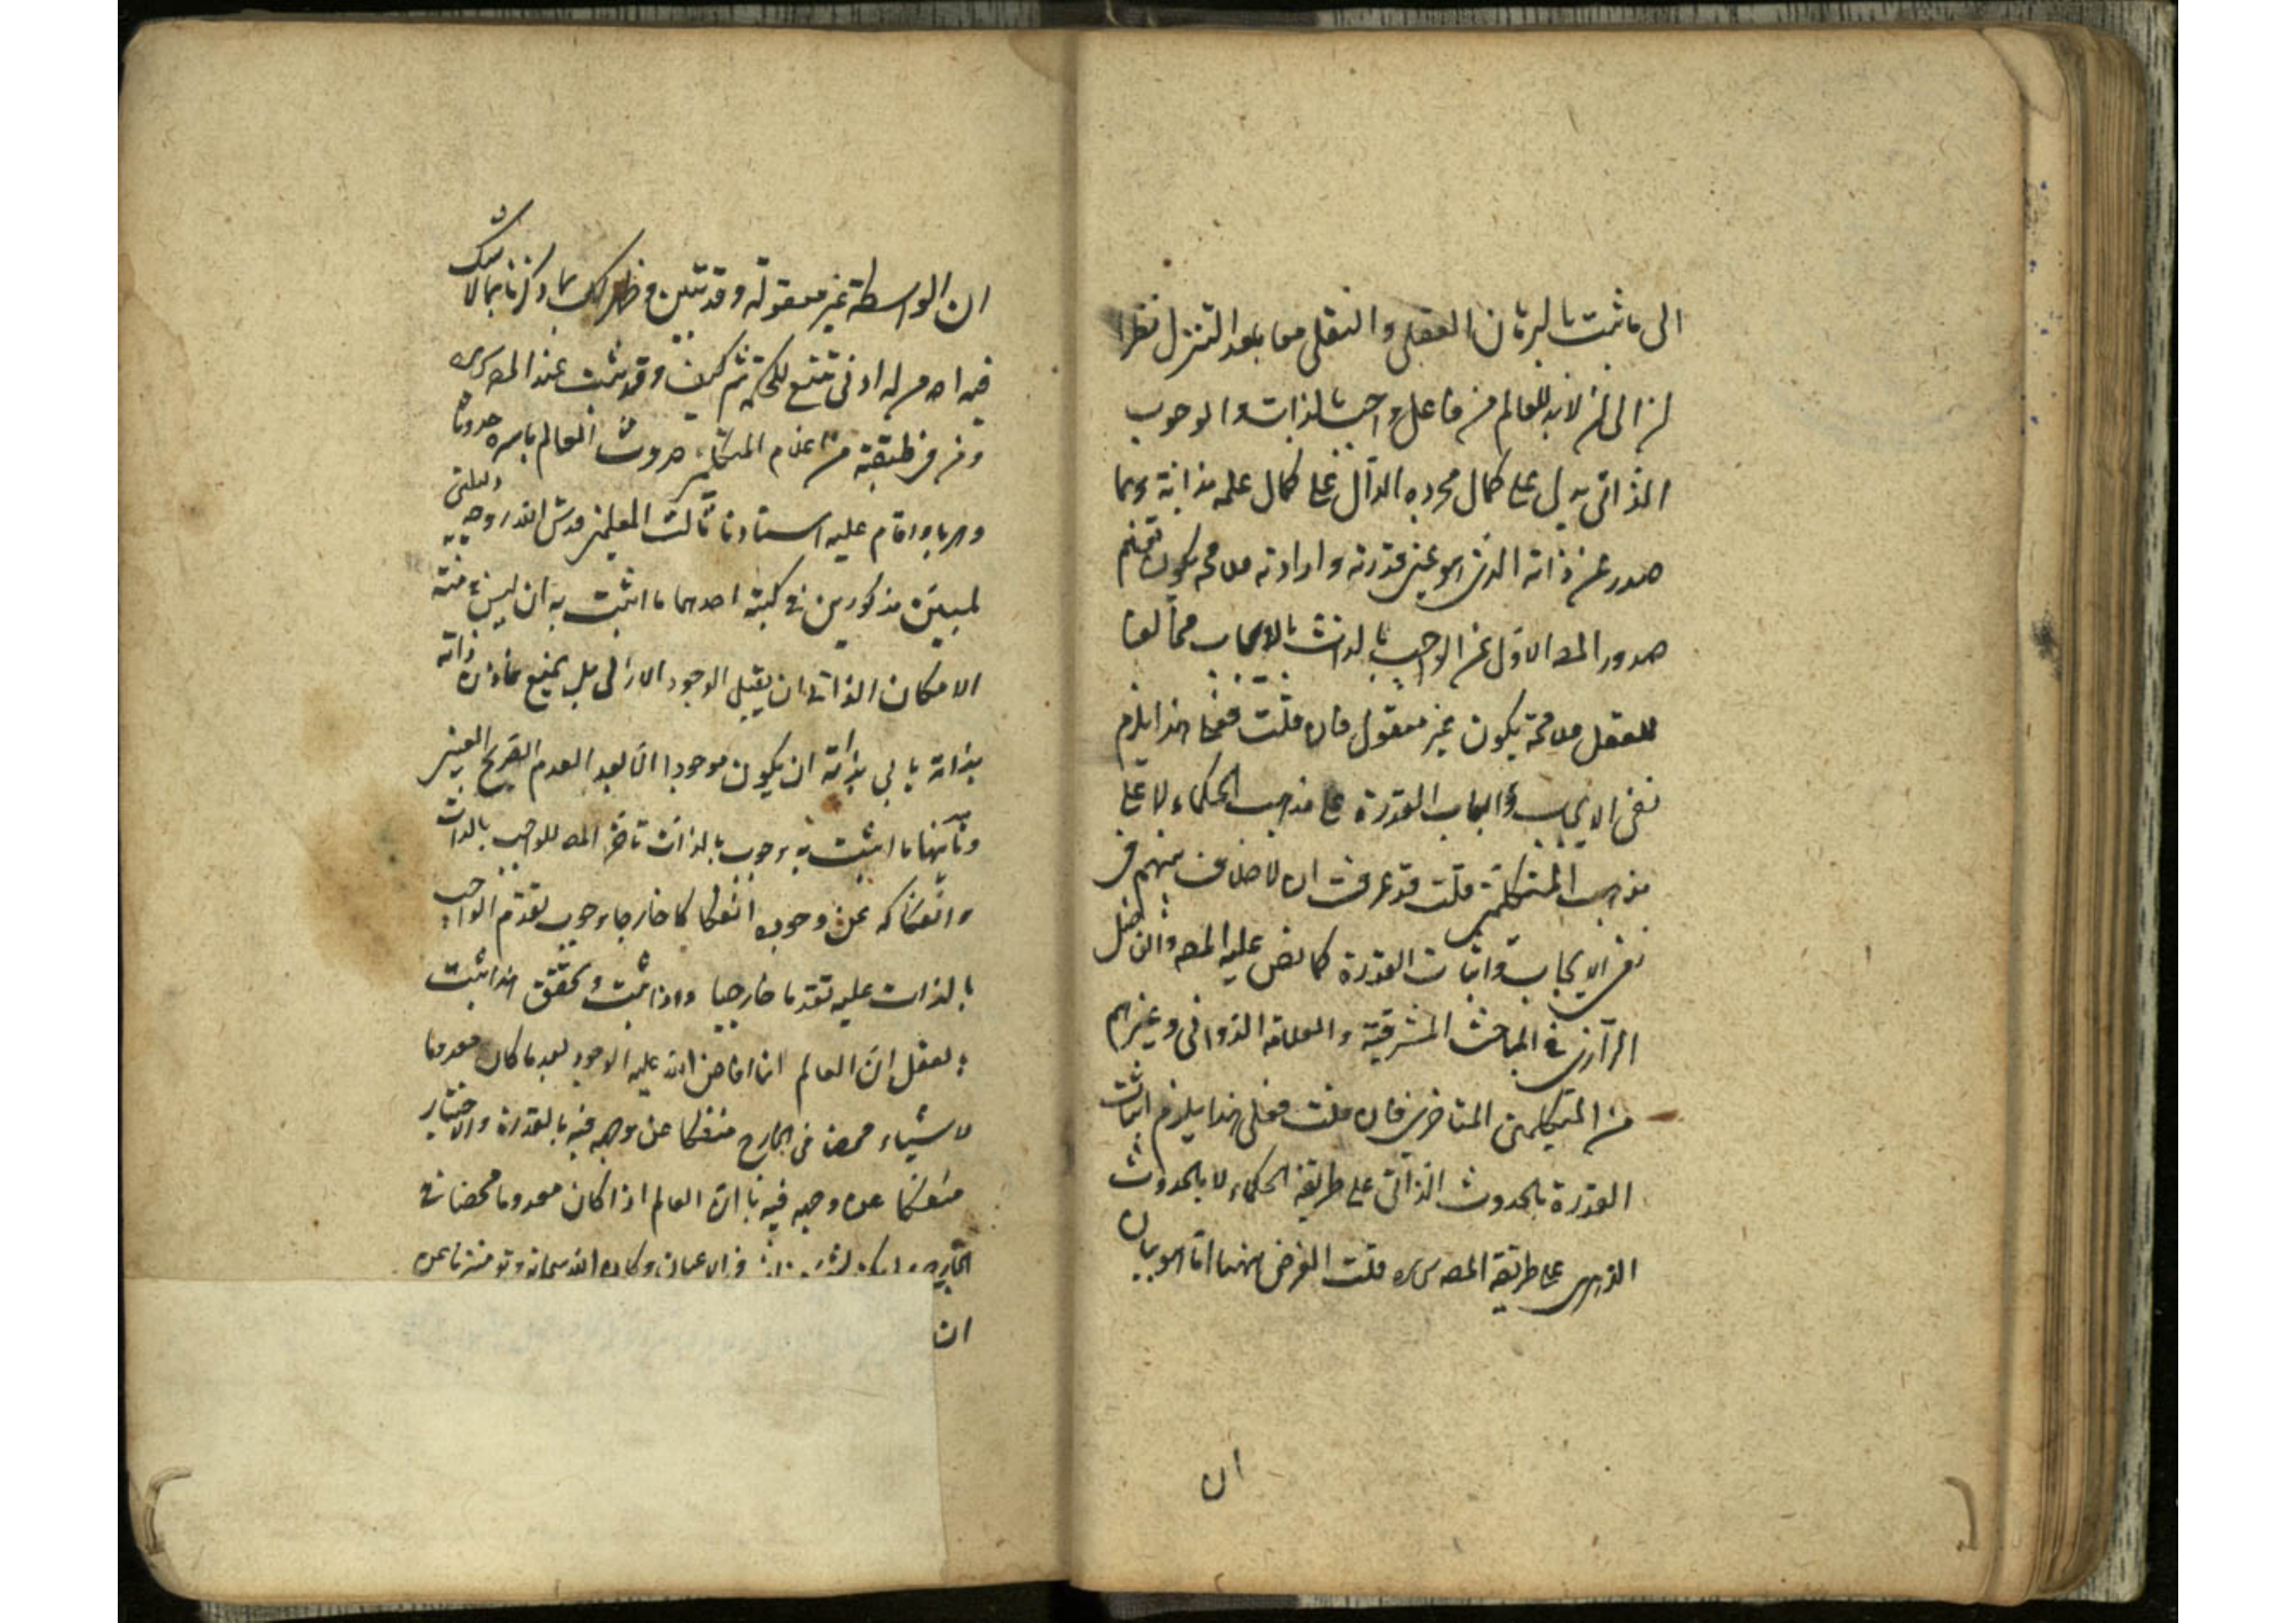 الى ما ثبت بالبرهان العقلى والنقلى معا بعد التنزل نظرا
الى ان لابد للعالم من فاعل واجب بالذات والوجوب
الذاتى يدل على كمال تجرده الدال على كمال علمه بذاته وبما
صدر عن ذاته الذى هو عين قدرته وارادته فلا محة يكون تفهم
صدور المعه الاول عن الواجب بالذات بالايجاب مخالفا
للعقل فلا محة يكون غير معقول فان قلت فعلى هذا يلزم
نفى الايجاب واثبات القدرة على مذهب الحكماء لا على
مذهب المتكلمين قلت قد عرفت ان لا خلاف بينهم فى
نفى الايجاب واثبات القدرة كما نص عليه المصه والفاضل
الرازى فى المباحث المشرقية والعلامة الدوانى وغيرهم
من المتكلمين المتاخرين فان قلت فعلى هذا يلزم اثبات
القدرة بالحدوث الذاتى على طريقة الحكماء لا بالحدوث
الدهرى على طريقة المصه قلت الغرض ههنا انما هو بيان
ان
ان الواسطة غير معقولة وقد تبين وظهر لك بما ذكرنا بما لا شك
فيه احد من له ادنى تتبع للحكمة ثم كيف وقد ثبت عند المصه
ومن فى طبقته من اعلام المتكلمين حدوث العالم باسره حدوثا
دهريا واقام عليه استادنا ثالث المعلمين قدس الله روحه دليلين
لميين مذكورين فى كتبه احدهما ما اثبت به ان ليس فى منته
الامكان الذاتى ان يقبل الوجود الازلى بل يمتنع ذاته
بذاته يابى بذاته ان يكون موجودا الا بعد العدم الصريح الغير
وثانيهما ما اثبت به وجوب بالذات تاخر المعه للواجب بالذات
وانفكاكه عن وجوده انفكاكا خارجيا وجوب تقدم الواجب
بالذات عليه تقدما خارجيا واذا ثبت وتحقق هذا ثبت
بالعقل ان العالم انما افاض الله عليه الوجود بعد ما كان معدوما
لا شيئا محضا فى الخارج منفكا عن وجهه فيه بالقدرة والاختيار
منفكا عن وجهه فيه بان العالم اذا كان معدوما محضا فى
الخارج فى الاعيان وكان الله سبحانه وتع منزها عن
ان